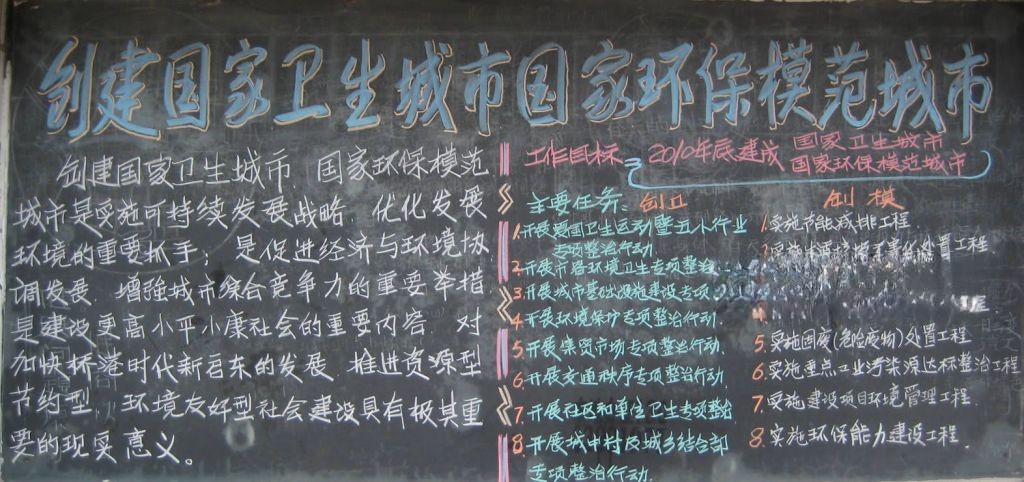 创建国家卫生城市国家环保模范城市
创建国家卫生城市 国家环保模范
城市是实施可持续发展战略 优化发展
环境的重要抓手；是促进经济与环境协
调发展 增强城市综合竞争力的重要举措
是建设更高小平小康社会的重要内容 对
加快桥港时代新启东的发展 推进资源型
节约型 环境友好型社会建设具有极其重
要的现实意义。
工作目标 2010年底建成 国家卫生城市
国家环保模范城市
主要任务: 创卫
1.开展爱国卫生运动暨五小行业
专项整治行动
2.开展市路环境卫生专项整治
3.开展城市基础设施建设专项
4.开展环境保护专项整治行动
5.开展集贸市场专项整治行动.
6.开展交通秩序专项整治行动
7.开展社区和单位卫生专项整治
8.开展城中村及城乡结合部
专项整治行动.
创模
1.实施节能减排工程
处置工程
5.实施固废(危险废物)处置工程
6.实施重点工业污染源达标整治工程
7.实施建设项目环境管理工程
8.实施环保能力建设工程.